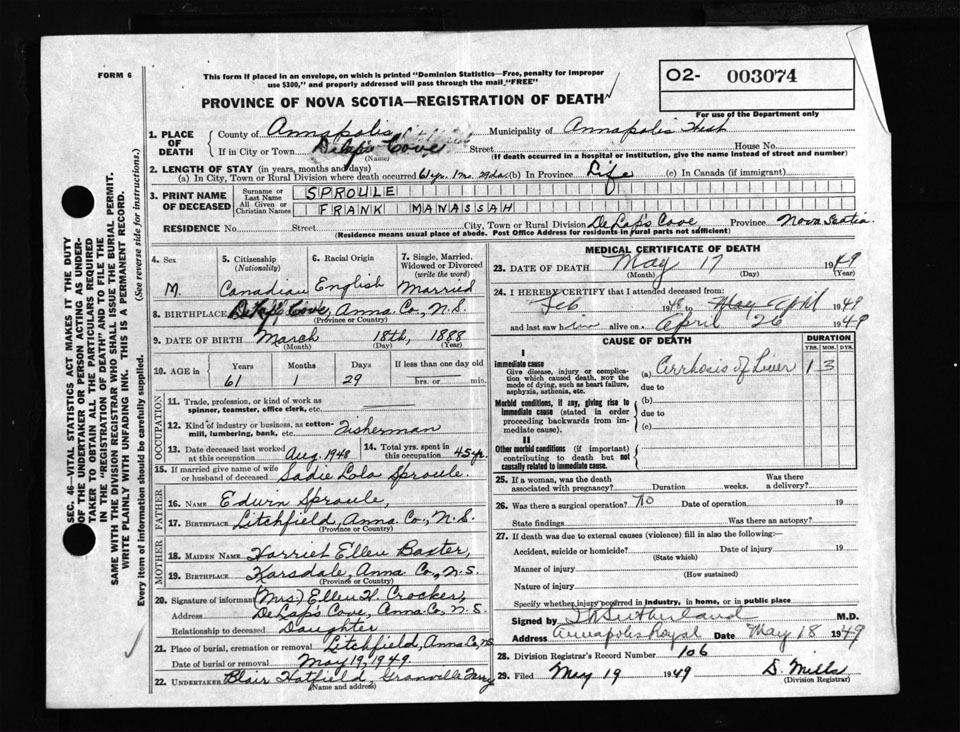 FORM 6
This form if placed in an envelope, on which is printed "Dominion Statistics—Free, penalty for improper
use $300," and properly addressed will pass through the mail "FREE"
PROVINCE OF NOVA SCOTIA—REGISTRATION OF DEATH
O2- 003074
For use of the Department only
1. PLACE OF DEATH
County of Annapolis Municipality of Annapolis West
If in City or Town Delap's Cove Street House No.
(Name) (If death occurred in a hospital or institution, give the name instead of street and number)
2. LENGTH OF STAY (in years, months and days)
(a) In City, Town or Rural Division where death occurred 61 yr. 1 mo. 29 da. (b) In Province Life (c) In Canada (if immigrant)
3. PRINT NAME OF DECEASED
Surname or Last Name SPROULE
All Given or Christian Names FRANK MANASSAH
RESIDENCE No. Street City, Town or Rural Division De Lap's Cove Province Nova Scotia
(Residence means usual place of abode. Post Office Address for residents in rural parts not sufficient)
4. Sex
M.
5. Citizenship (Nationality)
Canadian
6. Racial Origin
English
7. Single, Married, Widowed or Divorced (write the word)
Married
8. BIRTHPLACE De Lap's Cove, Anna. Co., N.S.
(Province or Country)
9. DATE OF BIRTH March 18th, 1888
(Month) (Day) (Year)
10. AGE in Years Months Days If less than one day old
61 1 29 hrs. or min.
OCCUPATION
11. Trade, profession, or kind of work as
spinner, teamster, office clerk, etc.
12. Kind of industry or business, as cotton-
mill, lumbering, bank, etc. Fisherman
13. Date deceased last worked at this occupation Aug. 1948
14. Total yrs. spent in this occupation 45 yr.
15. If married give name of wife
or husband of deceased Sadie Lola Sproule.
FATHER
16. NAME Edwin Sproule,
17. BIRTHPLACE Litchfield, Anna. Co., N.S.
(Province or Country)
MOTHER
18. MAIDEN NAME Harriet Ellen Baxter,
19. BIRTHPLACE Karsdale, Anna. Co., N.S.
(Province or Country)
20. Signature of informant (Mrs.) Ellen H. Crocker,
Address De Lap's Cove, Anna. Co., N.S.
Relationship to deceased Daughter
21. Place of burial, cremation or removal Litchfield, Anna Co, NS
Date of burial or removal May 19, 1949.
22. UNDERTAKER Blair Hatfield, Granville Ferry
(Name and address)
MEDICAL CERTIFICATE OF DEATH
23. DATE OF DEATH May 17 1949
(Month) (Day) (Year)
24. I HEREBY CERTIFY that I attended deceased from:
Feb 1948 to May April 1949
and last saw him alive on April 26 1949
CAUSE OF DEATH
DURATION
YRS. MOS. DYS.
I
Immediate cause
Give disease, injury or complica-
tion which caused death, not the
mode of dying, such as heart failure,
asphyxia, asthenia, etc.
(a) Cirrhosis of Liver 1 3
due to
Morbid conditions, if any, giving rise to
immediate cause (stated in order
proceeding backwards from im-
mediate cause).
(b)
due to
(c)
II
Other morbid conditions (if important)
contributing to death but not
causally related to immediate cause.
25. If a woman, was the death
associated with pregnancy? Duration weeks. Was there a delivery?
26. Was there a surgical operation? No Date of operation 19
State findings Was there an autopsy?
27. If death was due to external causes (violence) fill in also the following:
Accident, suicide or homicide? Date of injury 19
(State which)
Manner of injury
(How sustained)
Nature of injury
Specify whether injury occurred in industry, in home, or in public place
Signed by Sutherland M.D.
Address Annapolis Royal Date May 18 1949
28. Division Registrar's Record Number 106
29. Filed May 19 1949 D. Mills
(Division Registrar)
SEC. 46—VITAL STATISTICS ACT MAKES IT THE DUTY
OF THE UNDERTAKER OR PERSON ACTING AS UNDER-
TAKER TO OBTAIN ALL THE PARTICULARS REQUIRED
IN THE "REGISTRATION OF DEATH" AND TO FILE THE
SAME WITH THE DIVISION REGISTRAR WHO SHALL ISSUE THE BURIAL PERMIT.
WRITE PLAINLY WITH UNFADING INK. THIS IS A PERMANENT RECORD.
Every item of information should be carefully supplied. (See reverse side for instructions.)